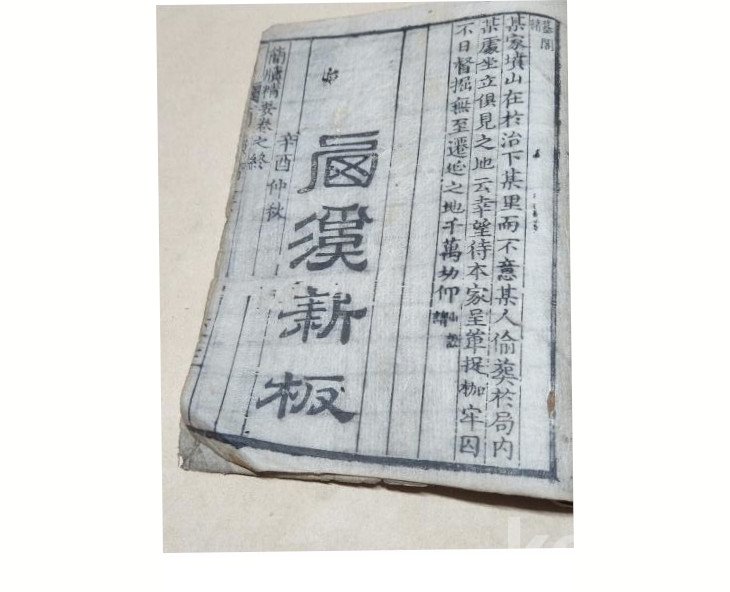 某家墳山在於治下某里而不意某人偷葬於局内
某處坐立俱見之地云幸望待本家呈單捉枷牢囚
不日督掘無至遷延之地千萬切仰
新板
辛酉仲秋
簡牘精要卷之終